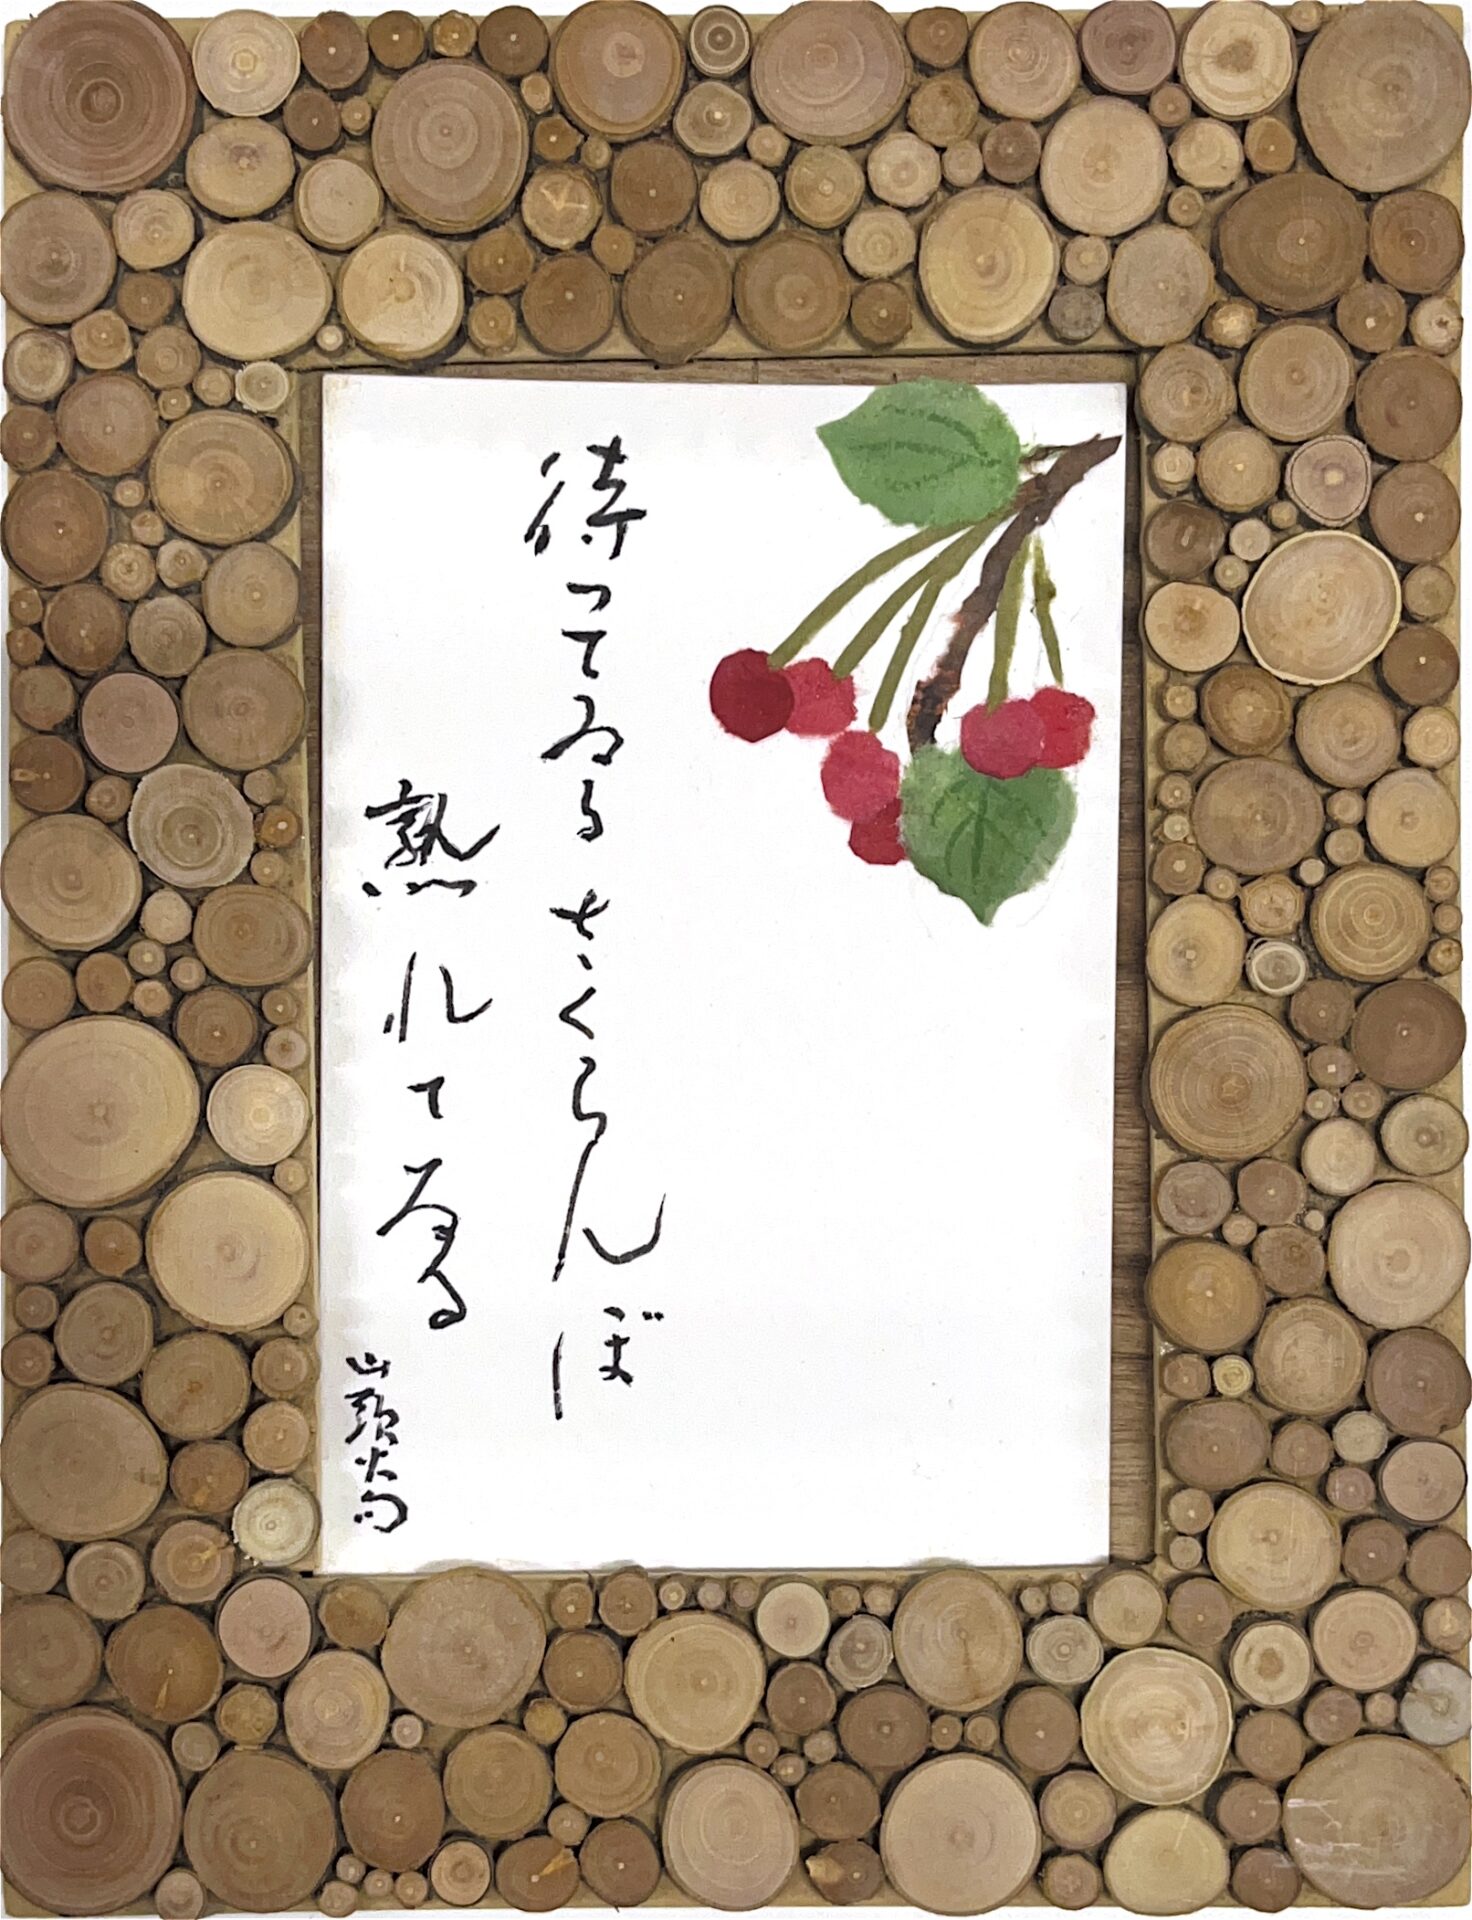 待ってゐるさくらんぼ
熟れてゐる
山頭火句